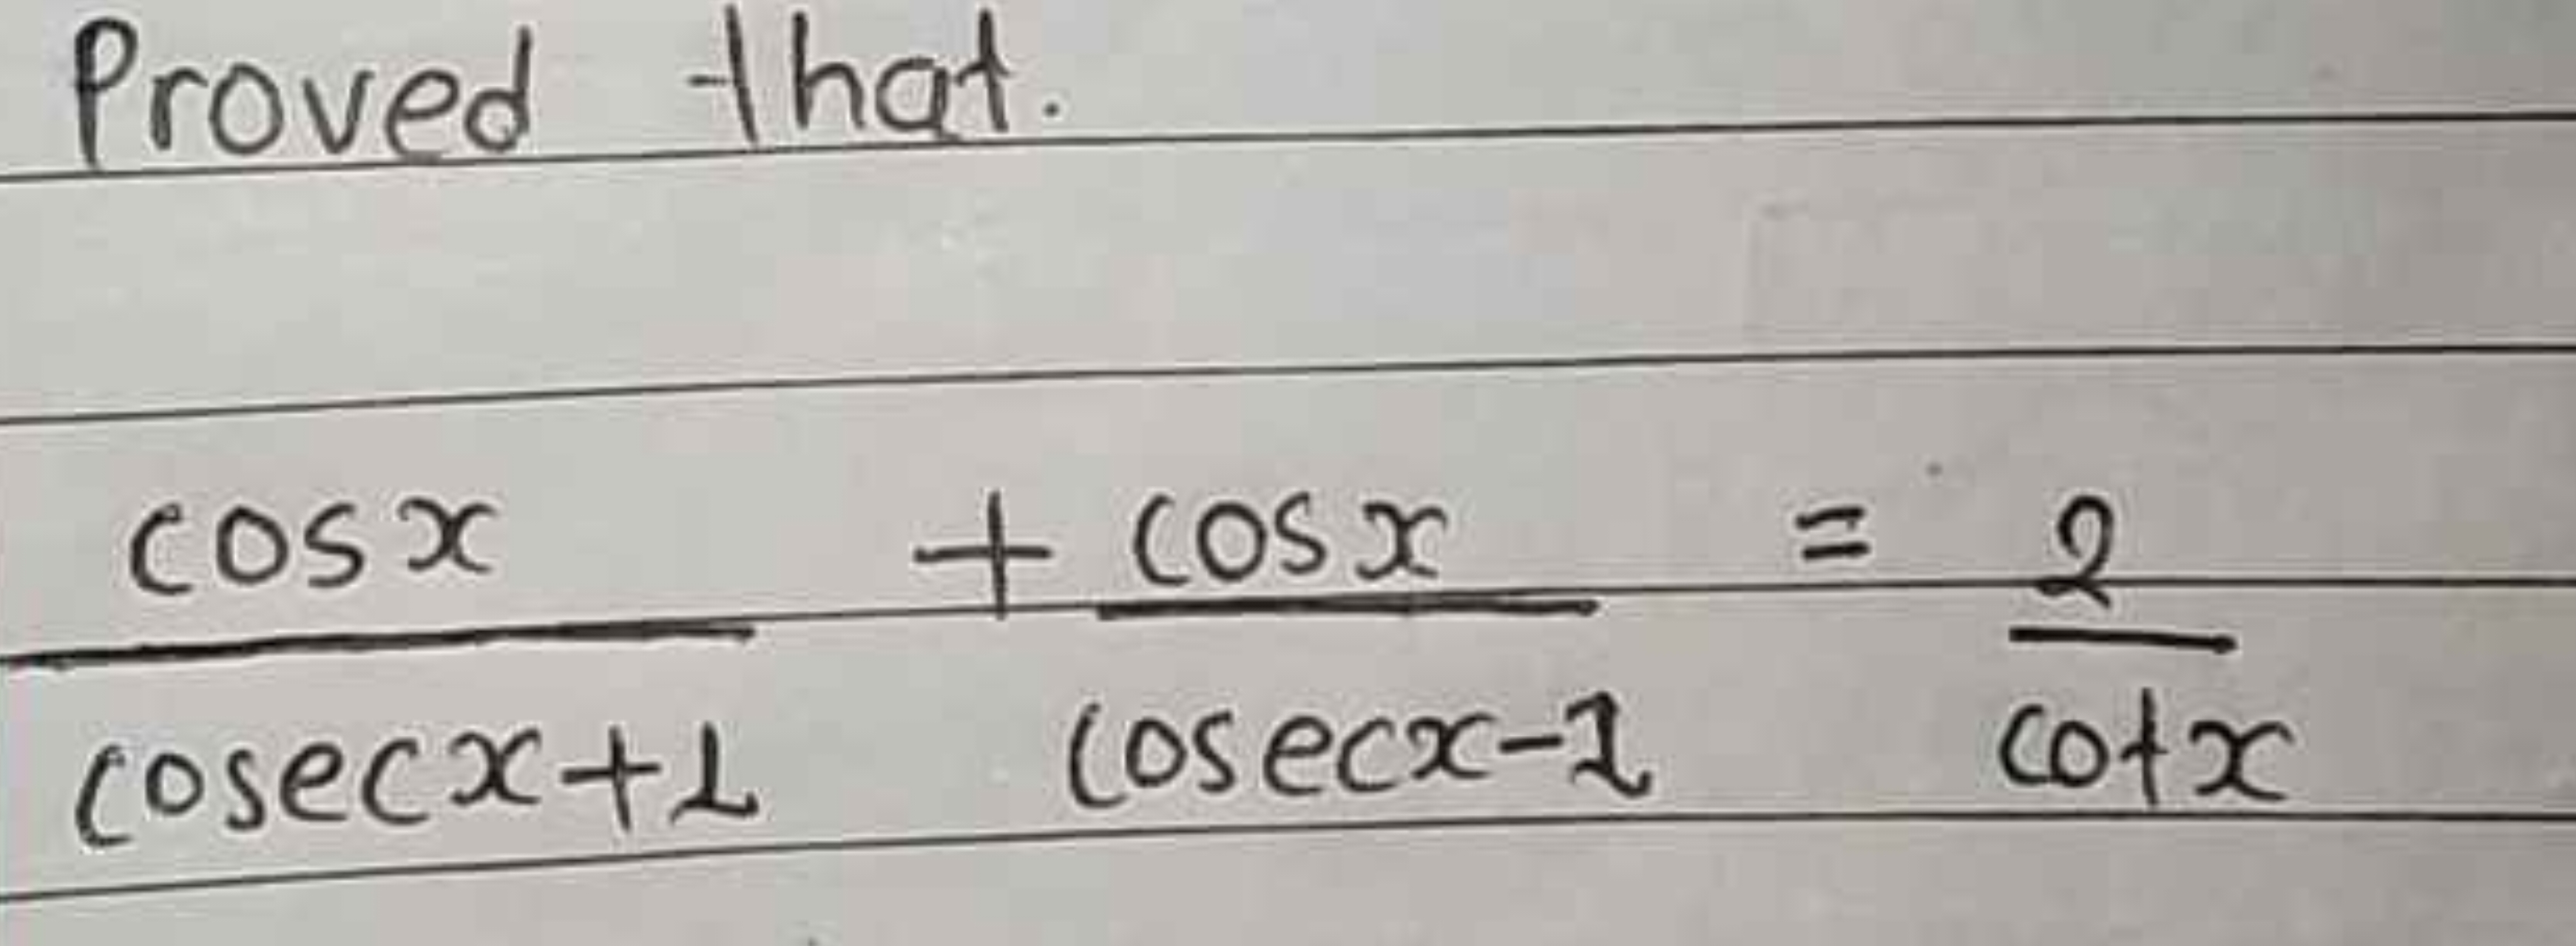 Proved that.
cosx + cosx = 2
cosecx+1 cosecx-1 cotx